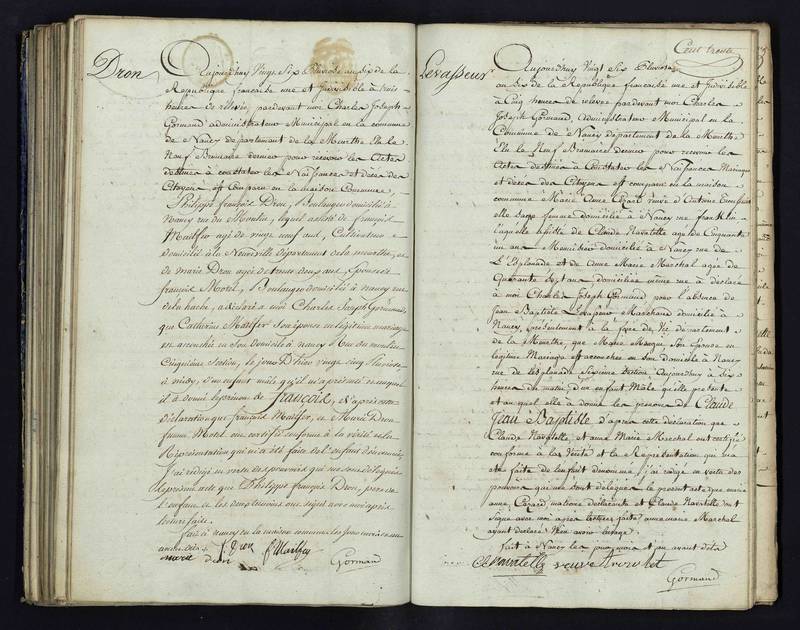 Dron
Aujourdhuy Vingt Six Pluviose an Six de la
République française une et Indivisible à trois
heures de relevée, pardevant moi Charles Joseph
Gormand administrateur Municipal en la commune
de Nancy département de la Meurthe Elu le
Neuf Brumaire dernier pour recevoir les Actes
destinés à constater les Naissances et décès des
Citoyens est Comparu en la maison Commune,
Philippe françois Dron, Boulanger domicilié à
Nancy rue du Moulin, lequel assisté de françois
Mailfer agé de vingt neuf ans, Cultivateur
domicilié à la Neuville département de la meurthe, et
de marie Dron agée de trente deux ans, Epouse de
françois Motel, Boulanger domicilié à nancy rue
de la hache, a déclaré à moi Charles Joseph Gormand,
que Catherine Mailfer Son épouse en légitime mariage
est accouchée en Son domicile à nancy Rue du moulin
Cinquième Section, le jour D'hier vingt cinq pluviose
à midy, d'un enfant mâle qu'il m'a présenté et auquel
il à donné le prénom de françois, d'après cette
déclaration que françois Mailfer, et Marie Dron
femme Motel ont certifié conforme à la vérité et la
Représentation qui m'a été faite de l'enfant dénommé,
J'ai rédigé en vertu des pouvoirs qui me sont délégués
le présent acte que Philippe françois Dron, père de
l'enfant et les deux témoins ont signé avec moi après
lecture faite.
fait à nancy en la maison commune les jour mois et an
avant dits
f. Dron f Mailfer
marie dron
Gormand
Cent trente
Levasseur
Aujourdhuy Vingt Six Pluviose
an Six de la République française une et Indivisible
à Cinq heures de relevée pardevant moi Charles
Joseph Gormand, Administrateur Municipal en la
Commune de Nancy département de la Meurthe
Elu le Neuf Brumaire dernier pour recevoir les
Actes destinés à Constater les Naissances Mariages
et décès des Citoyens est comparue en la maison
commune Marie Anne Cézard veuve d'Antoine
elle Sage femme domiciliée à Nancy rue franklin
laquelle assistée de Claude Navatelle agé de Cinquante
un ans Menuisier domicilié à Nancy rue de
L'Esplanade et de Anne Marie Marchal agée de
Quarante Sept ans domiciliée même rue à déclaré
à moi Charles Joseph Gormand pour l'absence de
Jean Baptiste Levasseur Marchand domicilié à
Nancy, présentement à la foire de Vic département
de la Meurthe, que Marie Mangin, Son Epouse en
légitime Mariage est accouchée en Son domicile à Nancy
rue de l'esplanade Sixième Section Aujourdhuy à Six
heures du matin d'un enfant Mâle qu'elle présente
et auquel elle à donné les prénoms de Claude
Jean Baptiste d'après cette déclaration que
Claude Navatelle, et anne Marie Marchal ont certifié
conforme à la Vérité et la Représentation qui m'a
été faite de l'enfant dénommé, j'ai rédigé en vertu des
pouvoirs qui me sont délégués le présent acte que marie
anne Cézard, matrone déclarante et Claude Navatelle ont
Signé avec moi après lecture faite anne marie Marchal
ayant déclaré n'en avoir l'usage.
fait à Nancy les jour mois et an avant dits
Cl Navatelle veuve
Gormand